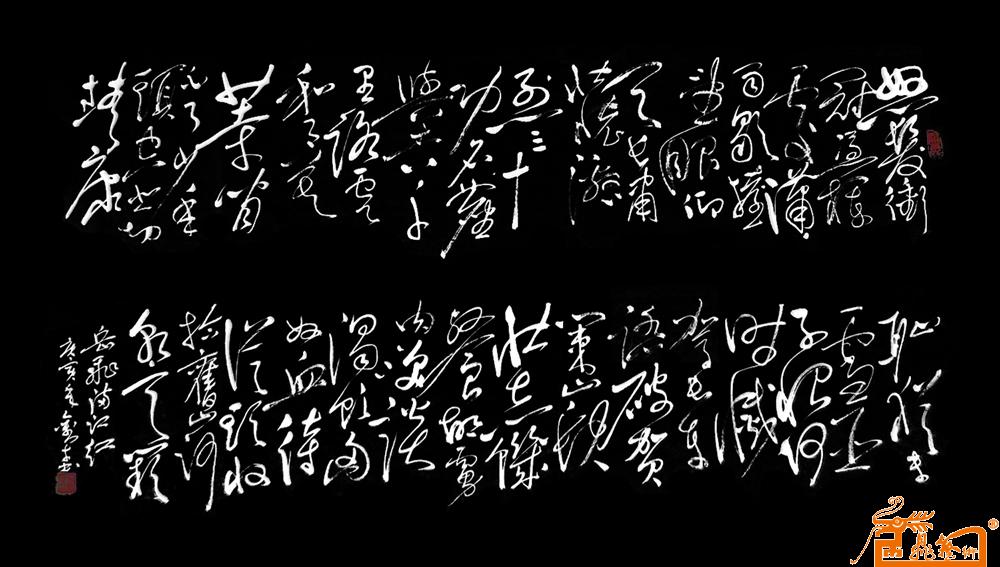 怒髮衝
冠憑欄
處瀟瀟
雨歇抬
望眼仰
天長嘯
壯懷激
烈三十
功名塵
與土八千
里路雲
和月莫
等閒
白了少年
頭空悲切
靖康
恥猶未
雪臣
子恨何
時滅
駕長車
踏破賀
蘭山缺
壯志饑
餐胡虜
肉笑談
渴飲匈
奴血待
從頭收
拾舊山河
朝天闕
岳飛滿江紅